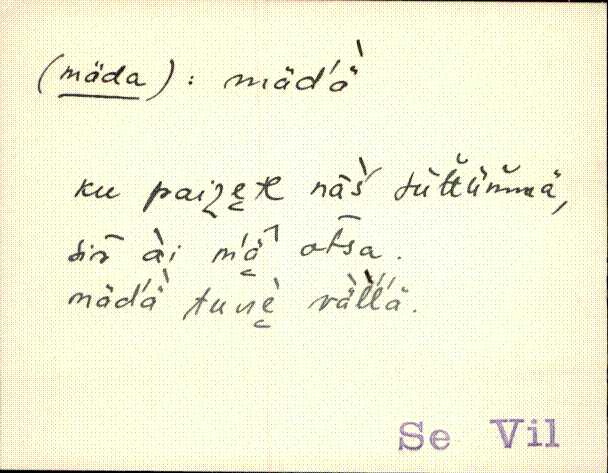 (mäda) : mäd́ä̀
ku paizɛ̮ᴋ nä̀š́ tüt̆t̆ünmä,
siz̄ ä̀i ḿä̮ˀ ot̄sa.
mäd́ä̀ tunɛ̮̀ vä̀ĺĺä.
Se Vil